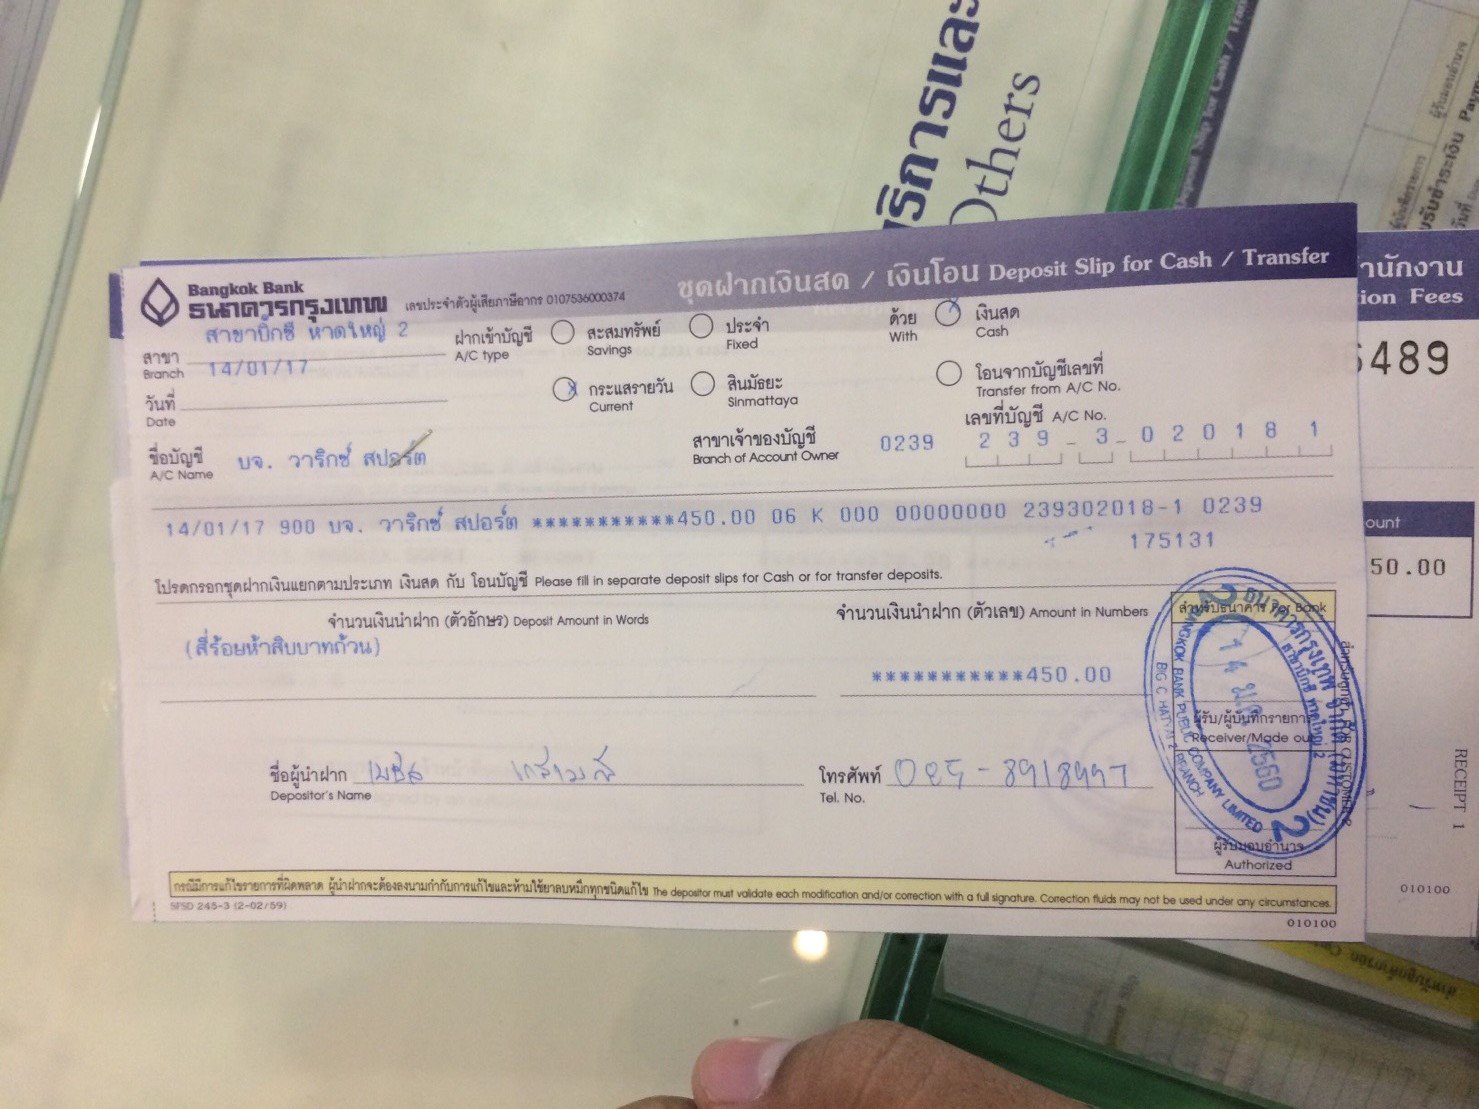 บริการและ
Others
Bangkok Bank
ธนาคารกรุงเทพ เลขประจำตัวผู้เสียภาษีอากร 0107536000374
ชุดฝากเงินสด / เงินโอน Deposit Slip for Cash / Transfer
สาขาบิ๊กซี หาดใหญ่ 2
สาขา
Branch
14/01/17
วันที่
Date
ฝากเข้าบัญชี
A/C type
สะสมทรัพย์
Savings
ประจำ
Fixed
ด้วย
With
เงินสด
Cash
กระแสรายวัน
Current
สินมัธยะ
Sinmattaya
โอนจากบัญชีเลขที่
Transfer from A/C No.
ชื่อบัญชี
A/C Name
บจ. วาริกซ์ สปอร์ต
สาขาเจ้าของบัญชี
Branch of Account Owner
0239
เลขที่บัญชี A/C No.
239-3-020181
14/01/17 900 บจ. วาริกซ์ สปอร์ต ***********450.00 06 K 000 00000000 239302018-1 0239
175131
โปรดกรอกชุดฝากเงินแยกตามประเภท เงินสด กับ โอนบัญชี Please fill in separate deposit slips for Cash or for transfer deposits.
จำนวนเงินนำฝาก (ตัวอักษร) Deposit Amount in Words
จำนวนเงินนำฝาก (ตัวเลข) Amount in Numbers
สำหรับธนาคาร For Bank
(สี่ร้อยห้าสิบบาทถ้วน)
***********450.00
ผู้รับ/ผู้บันทึกรายการ
Receiver/Made out
ธนาคารกรุงเทพ จำกัด (มหาชน)
สาขาบิ๊กซี หาดใหญ่ 2
14 ม.ค. 2560
BANGKOK BANK PUBLIC COMPANY LIMITED
BIG C HATYAI 2 BRANCH
2
2
ชื่อผู้นำฝาก
Depositor's Name
โทรศัพท์
Tel. No.
ผู้รับมอบอำนาจ
Authorized
กรณีมีการแก้ไขรายการที่ผิดพลาด ผู้นำฝากจะต้องลงนามกำกับการแก้ไขและห้ามใช้ยาลบหมึกทุกชนิดแก้ไข The depositor must validate each modification and/or correction with a full signature. Correction fluids may not be used under any circumstances.
SFSD 245-3 (2-02/59)
010100
านักงาน
ion Fees
6489
ount
50.00
RECEIPT 1
010100